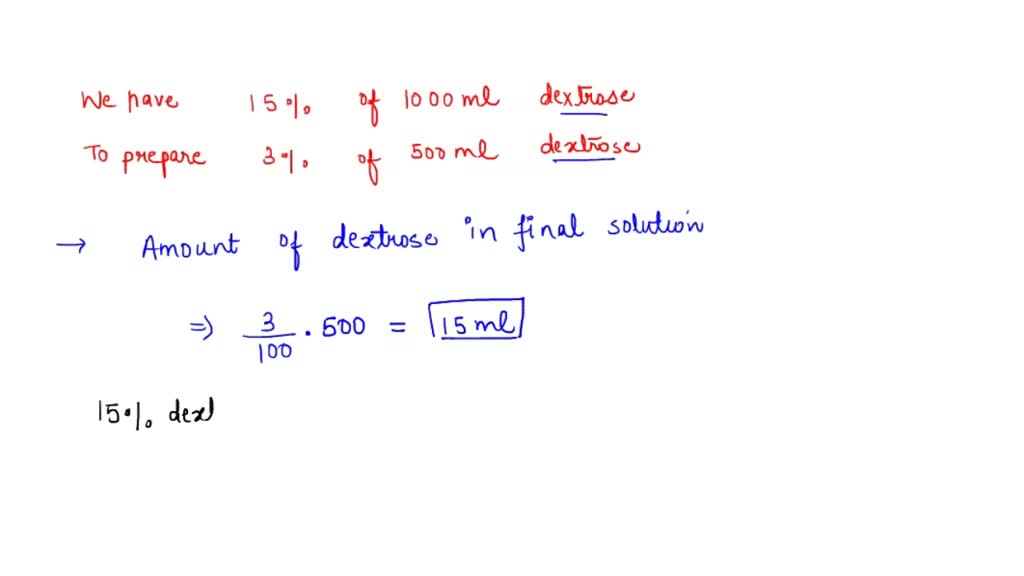 We have 15% of 1000 ml dextrose
To prepare 3% of 500 ml dextrose
→ Amount of dextrose in final solution
⇒ 3/100 . 500 = 15 ml
15% dext